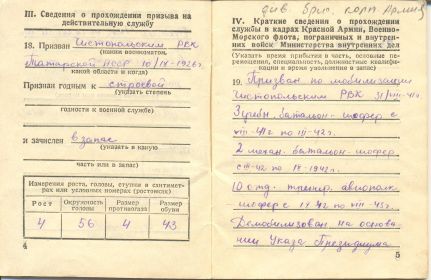 III. Сведения о прохождении призыва на
действительную службу
18. Призван Чистопольским РВК
(каким военкоматом,
Татарской АССР 10/IX-1926г.
какой области и когда)
Признан годным к строевой
(указать степень
годности к военной службе)
и зачислен в запас
(указать в какую
часть или в запас)
Измерения роста, головы, ступни в сантимет-
рах или условных номерах (ростовках)
Рост
Окружность
головы
Размер
противогаза
Размер
обуви
4 56 4 43
4
див. бриг. корп Армия
IV. Краткие сведения о прохождении
службы в кадрах Красной Армии, Военно-
Морского флота, пограничных и внутрен-
них войск Министерства внутренних дел
(Указать время прибытия в часть, основные пе-
ремещения, специальность, должностные квалифи-
кации и время увольнения в запас)
19. Призван по мобилизации
Чистопольским РВК 31/VIII-41г
батальон-шофер с
VIII-41г по III-42г.
2 механ. батальон-шофер
с III-42 по IX-1942г.
10 отд. тренир. авиаполк
шофер с IX 42 по VIII-45г
Демобилизован на основа-
нии Указа Президиума
5